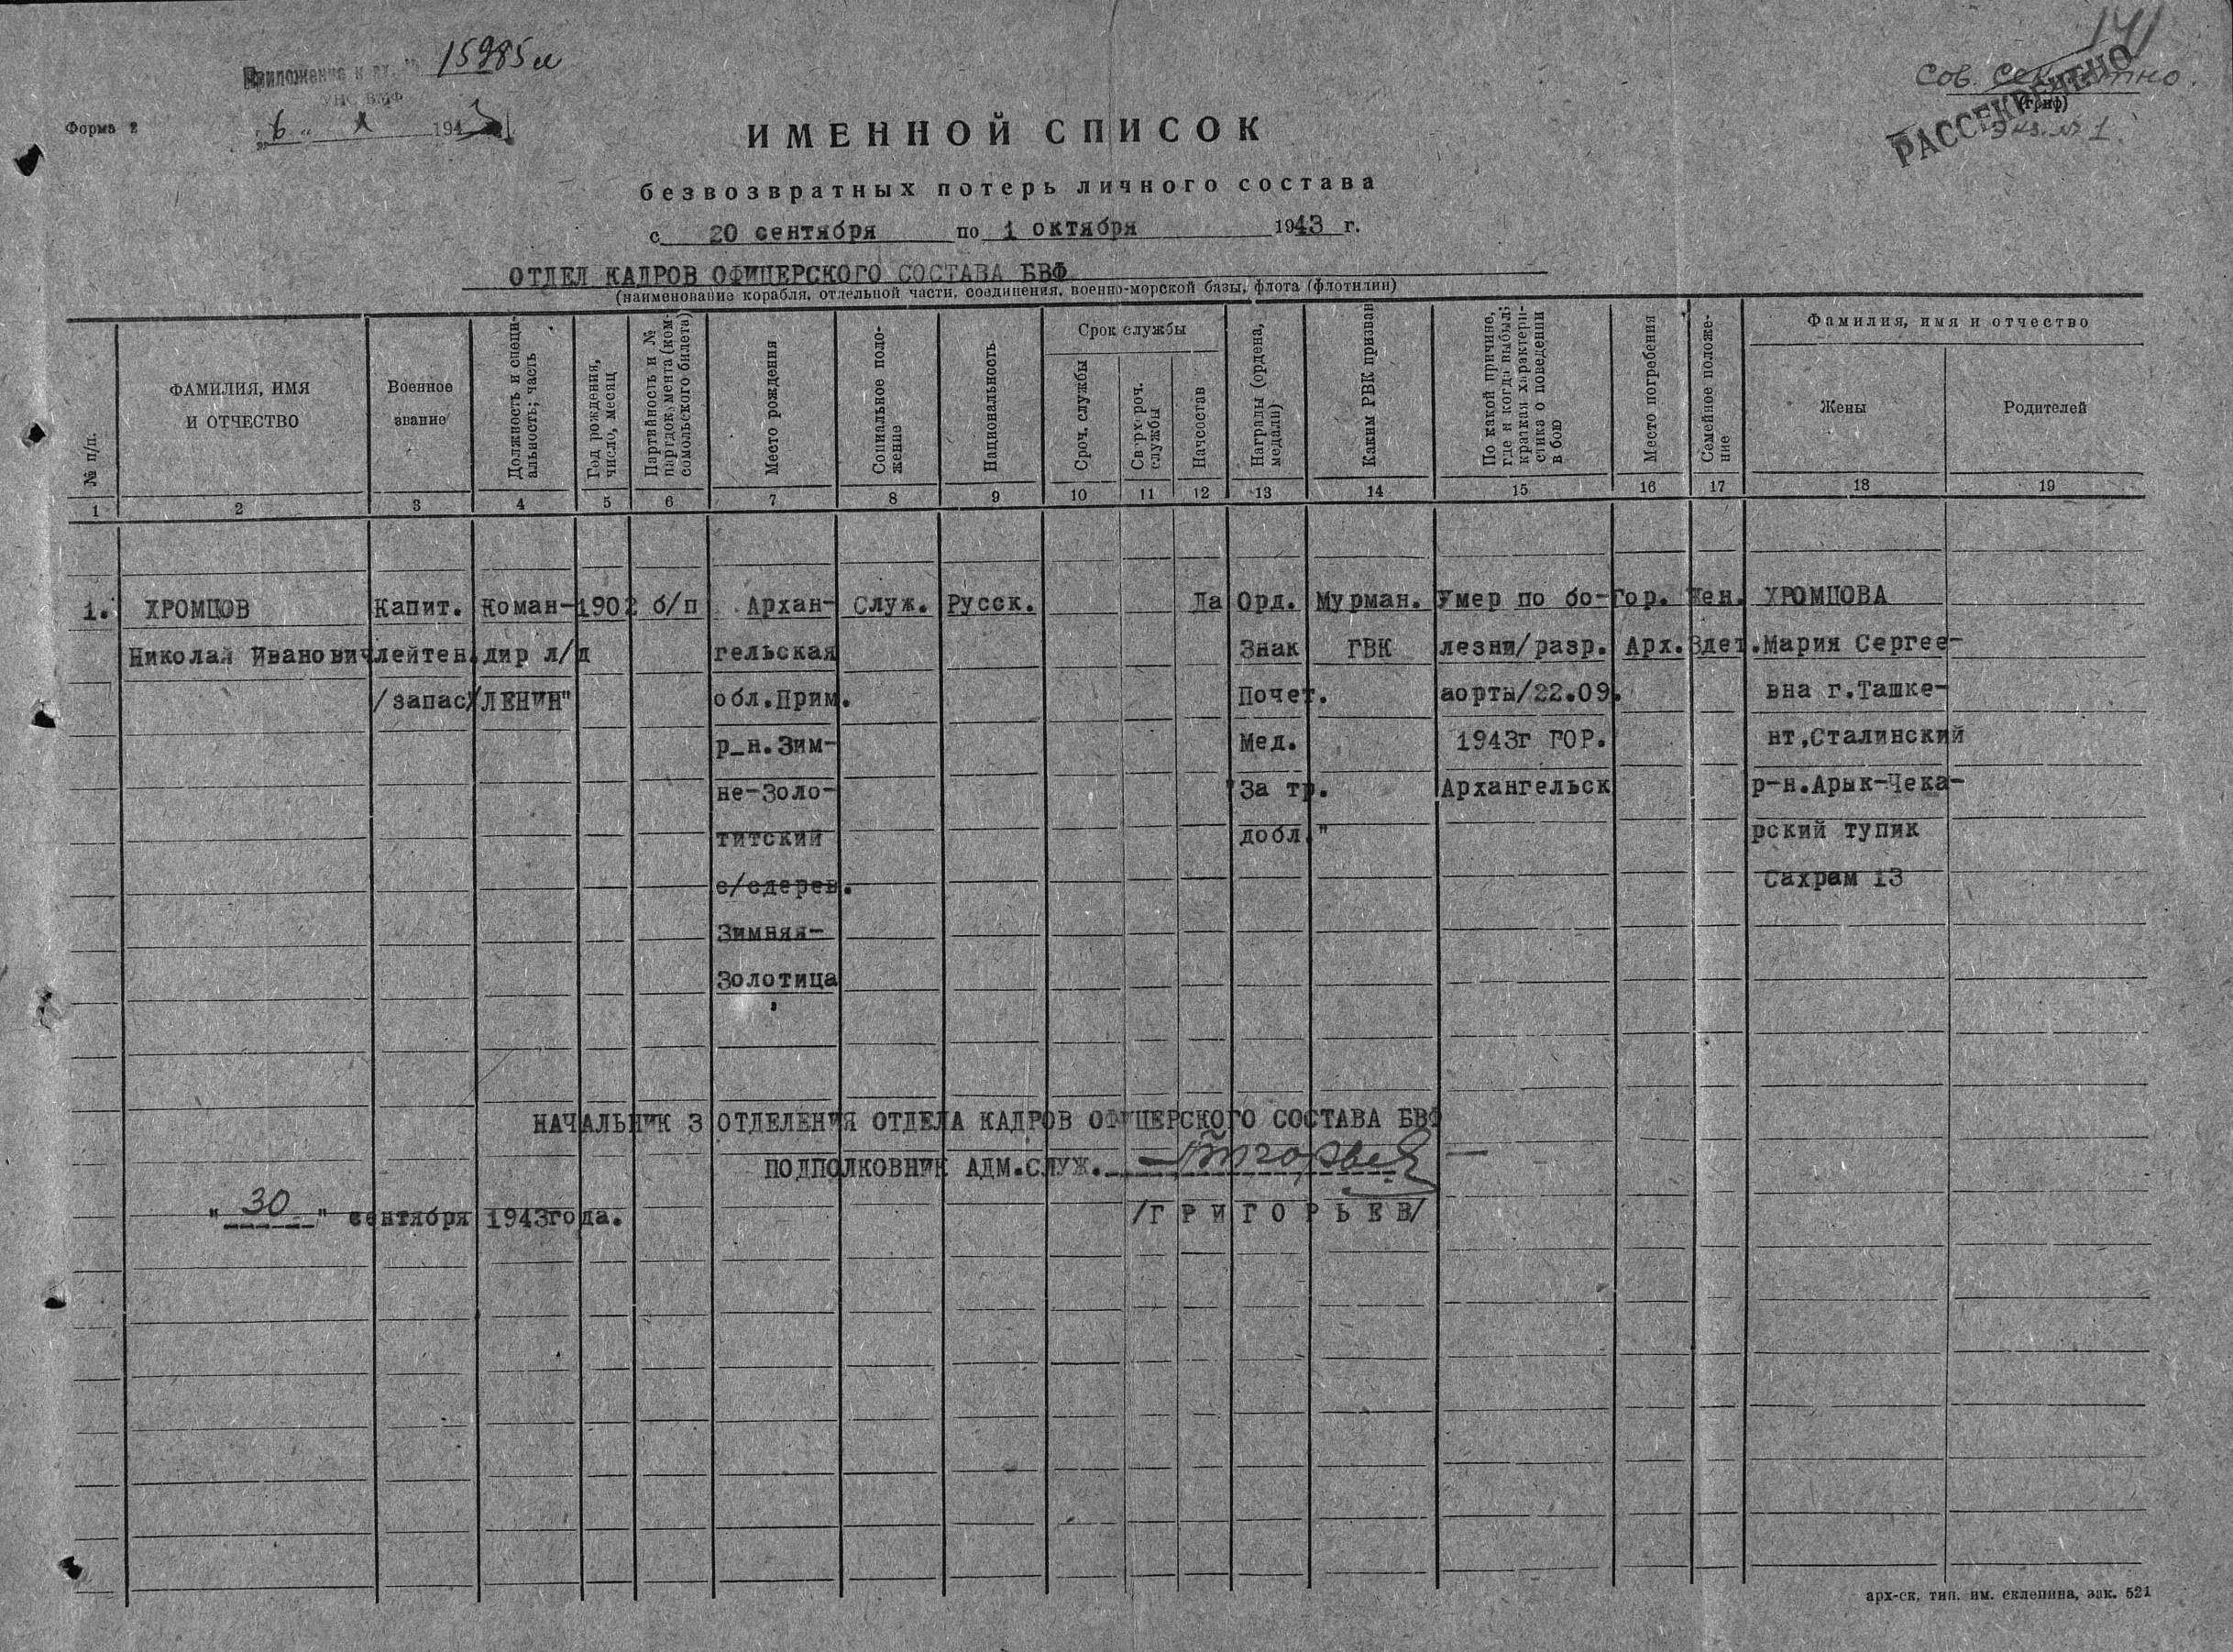 15985м
Приложение к вх. №
УНС ВМФ
Форма 2
„6" X 1943
141
Сов. Секретно.
(гриф)
РАССЕКРЕЧЕНО
Экз. № 1.
ИМЕННОЙ СПИСОК
безвозвратных потерь личного состава
с 20 сентября по 1 октября 1943 г.
ОТДЕЛ КАДРОВ ОФИЦЕРСКОГО СОСТАВА БВФ
(наименование корабля, отдельной части, соединения, военно-морской базы, флота (флотилии)
№ п/п.
ФАМИЛИЯ, ИМЯ
И ОТЧЕСТВО
Военное
звание
Должность и специ-
альность; часть
Год рождения,
число, месяц
Партийность и №
партдокумента (ком-
сомольского билета)
Место рождения
Социальное поло-
жение
Национальность
Срок службы
Сроч. службы
Сверхсроч.
службы
Начсостав
Награды (ордена,
медали)
Каким РВК призван
По какой причине,
где и когда выбыл;
краткая характери-
стика о поведении
в бою
Место погребения
Семейное положе-
ние
Фамилия, имя и отчество
Жены
Родителей
1 2 3 4 5 6 7 8 9 10 11 12 13 14 15 16 17 18 19
1. ХРОМЦОВ Капит. Коман- 1902 б/п Архан- Служ. Русск. Да Орд. Мурман. Умер по бо- Гор. Жен. ХРОМЦОВА
Николай Иванович лейтен. дир л/д гельская Знак ГВК лезни/разр. Арх. 3дет. Мария Сергее-
/запас/ ЛЕНИН" обл.Прим. Почет. аорты/22.09. вна г.Ташке-
р-н.Зим- Мед. 1943г ГОР. нт,Сталинский
не-Золо- "За тр. Архангельск р-н.Арык-Чека-
титский добл." рский тупик
с/сдерев. Сахрам 13
Зимняя-
Золотица
НАЧАЛЬНИК 3 ОТДЕЛЕНИЯ ОТДЕЛА КАДРОВ ОФИЦЕРСКОГО СОСТАВА БВФ
ПОДПОЛКОВНИК АДМ.СЛУЖ.
"30" сентября 1943года. /ГРИГОРЬЕВ/
арх-ск, тип. им. склепина, зак. 521